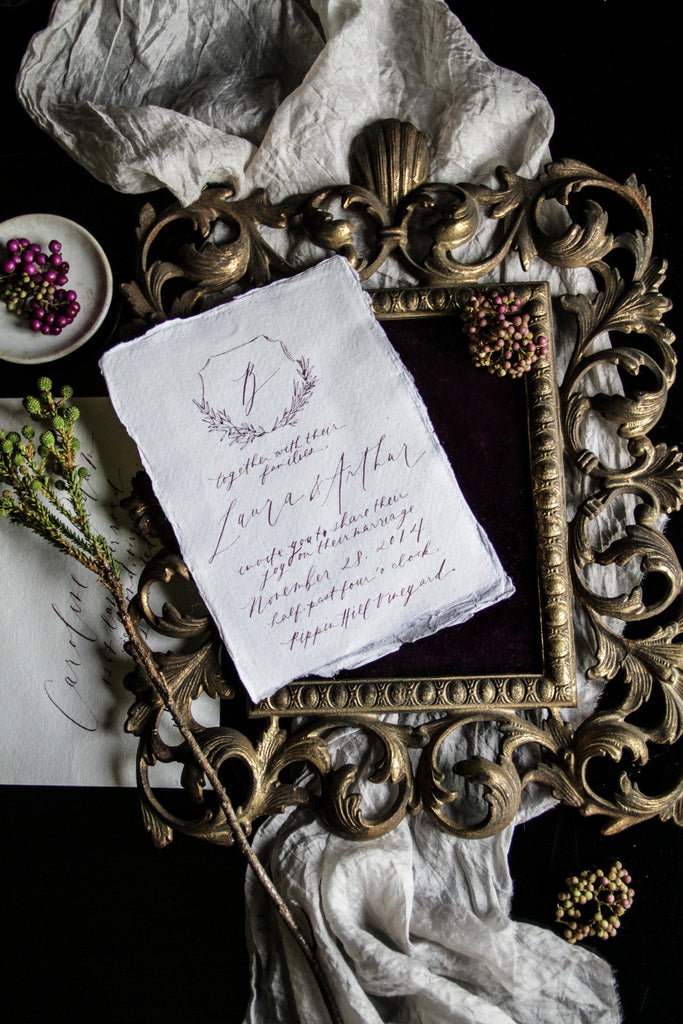 B
together with their
families
Laura & Arthur
invite you to share their
joy on their marriage
November 28, 2014
half past four o'clock
Pippin Hill Vineyard
Caroline